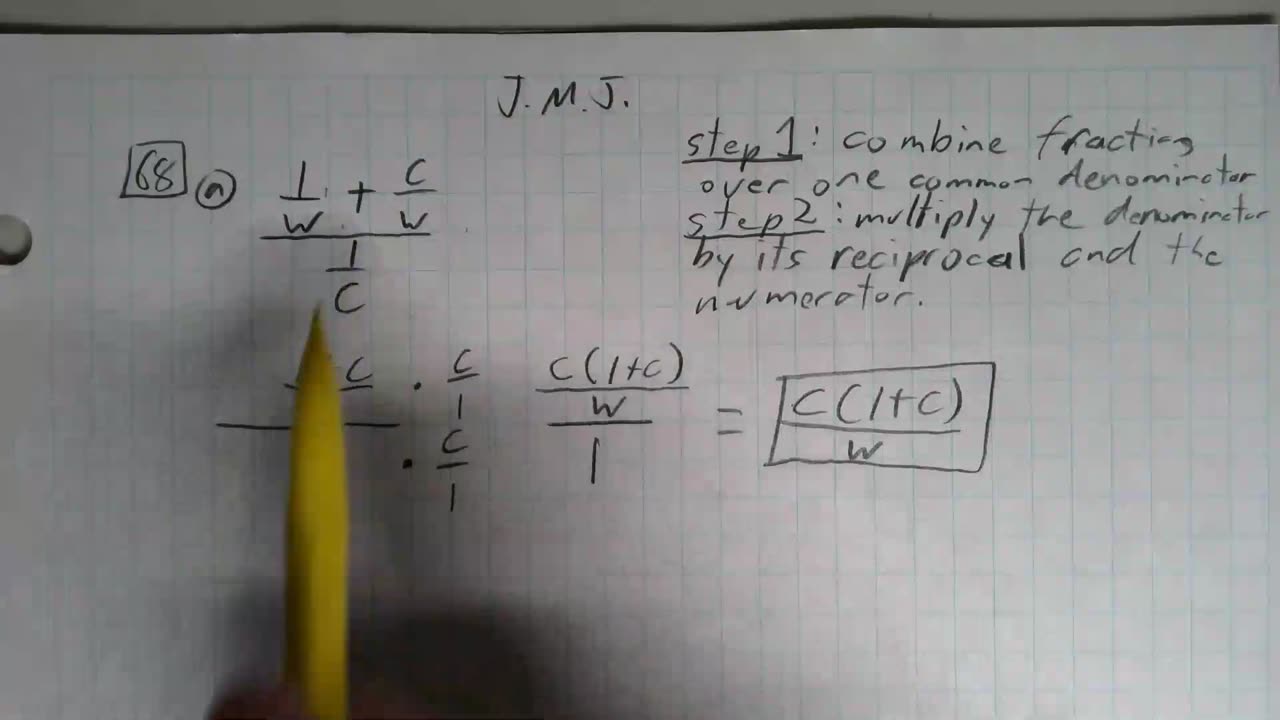 J.M.J.
68 a 1/w + c/w
1/c
step 1: combine fractins
over one common denominator
step 2: multiply the denominator
by its reciprocal and the
numerator.
c · c/1
· c/1
c(1+c)/w
1
= c(1+c)/w